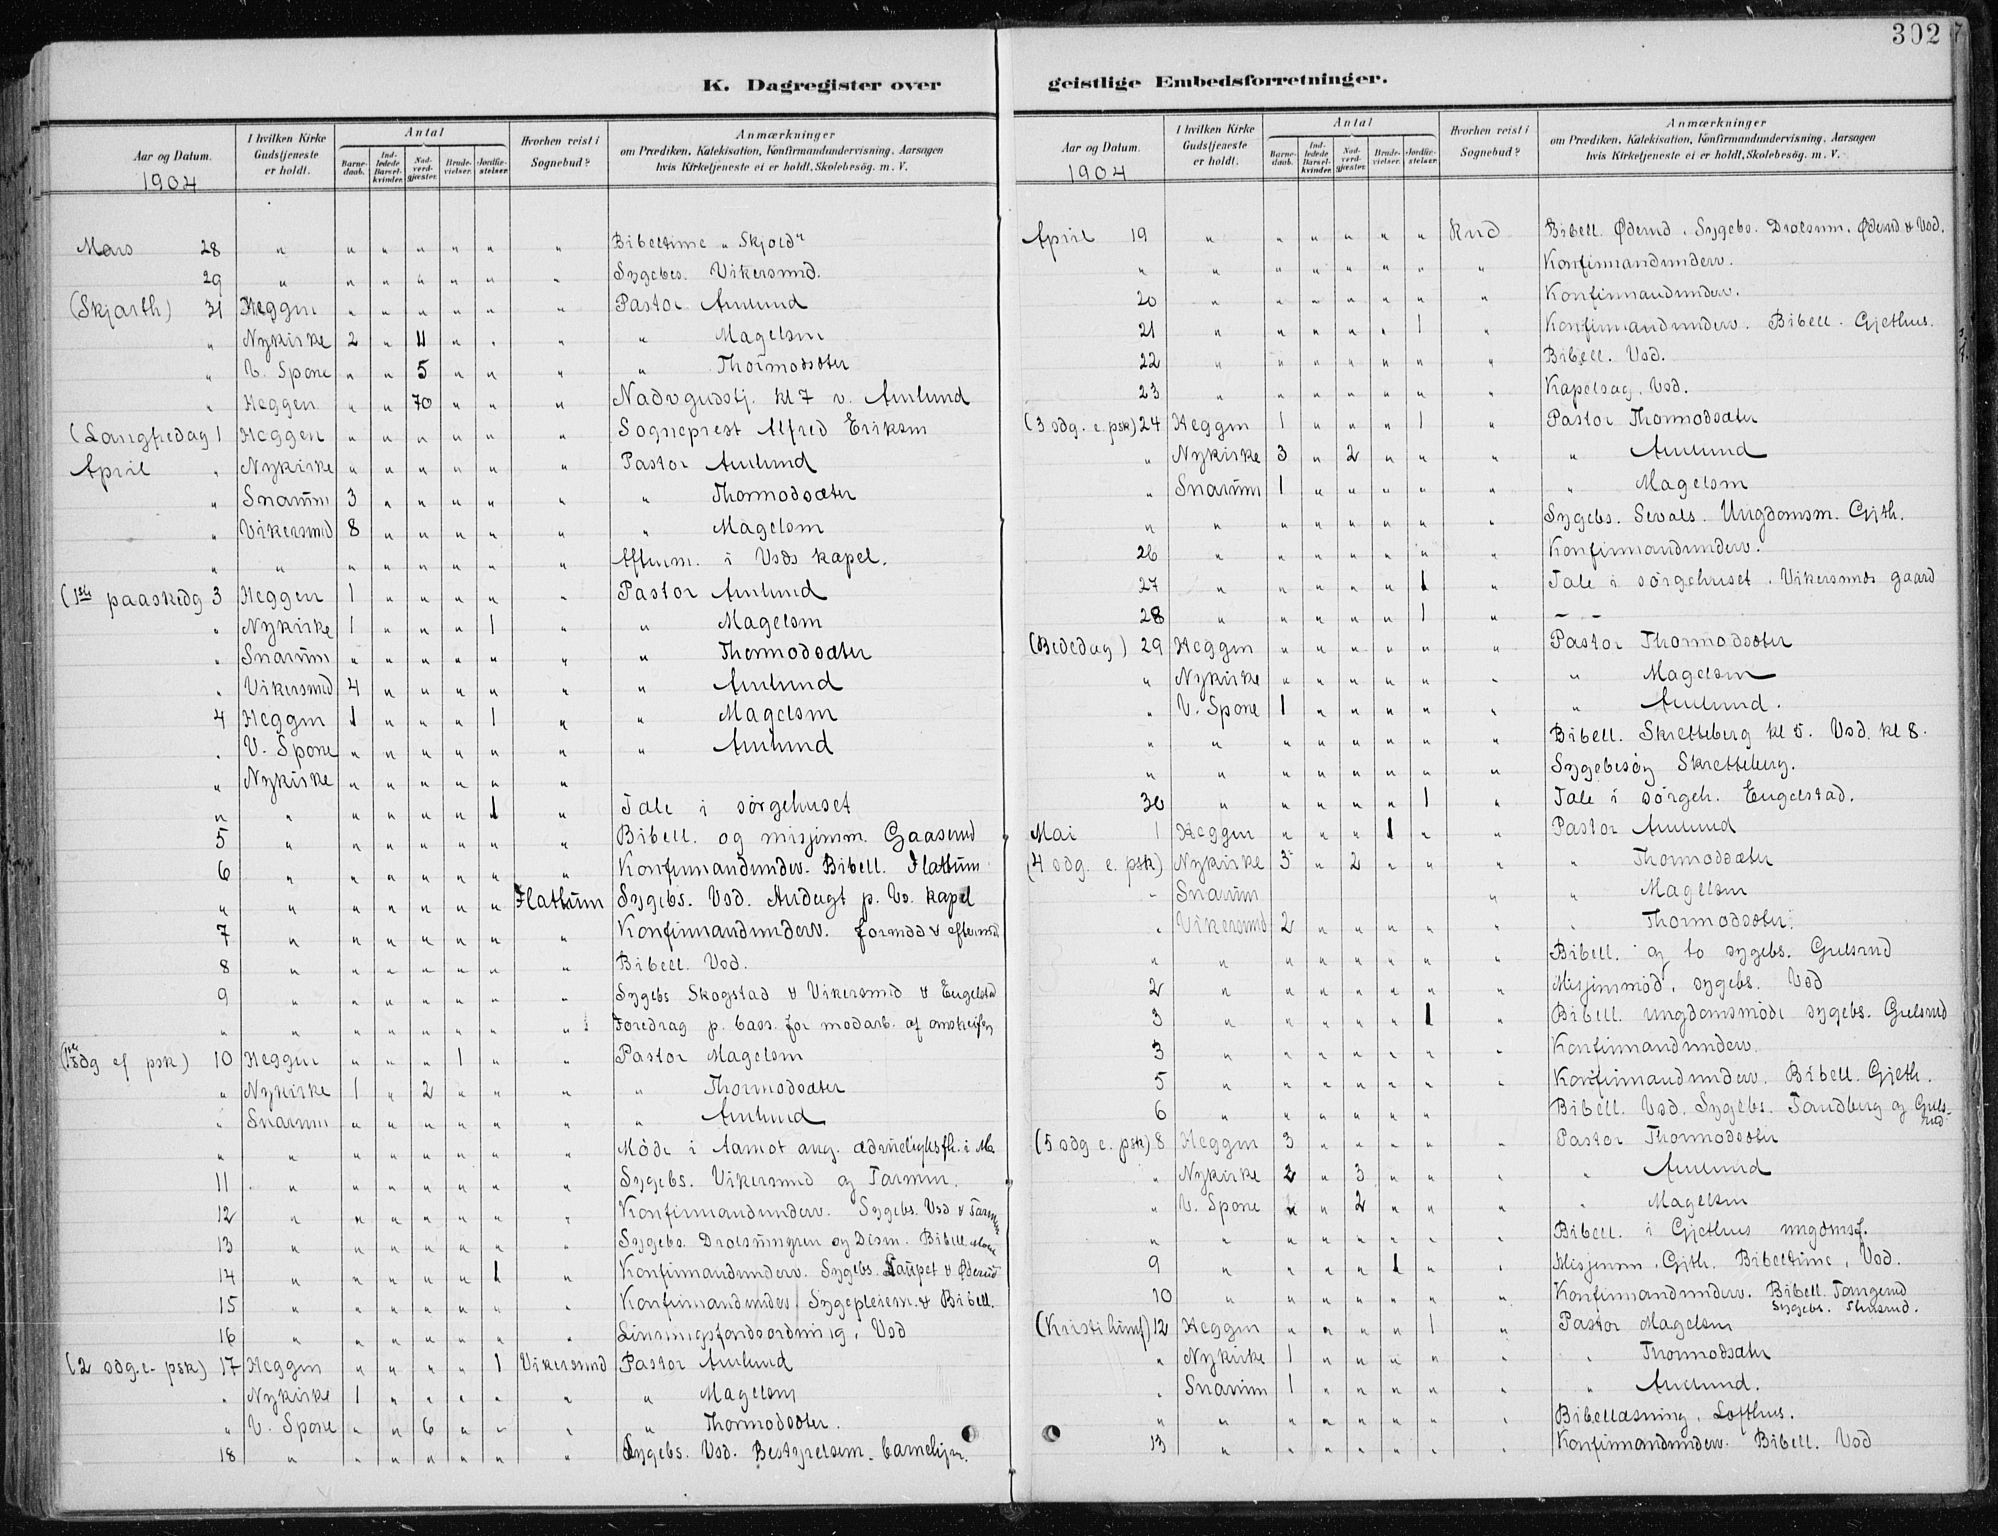 302
K. Dagregister over
geistlige Embedsforretninger.
Aar og Datum. I hvilken Kirke Gudstjeneste er holdt. Antal Barnedaab. Indledede Barselkvinder. Nadverdgjæster. Brudevielser. Jordfæstelser. Hvorhen reist i Sognebud? Anmærkninger om Prædiken, Katekisation, Konfirmandundervisning, Aarsagen hvis Kirketjeneste ei er holdt, Skolebesög. m. V.
1904
Mars 28 " " " " " " " Bibeltime "Skjold"
29 " " " " " " " Sygebes. Vikersund.
(Skjærth) 31 Heggen " " " " " " Pastor Amlund
" Nykirke 2 " 4 " " " " Magelsen
" V. Spone " " 5 " " " " Thormodsæter
" Heggen " " 70 " " " Nadvgudstj. kl 7 v. Amlund
(Langfredag 1 Heggen " " " " " " Sogneprest Alfred Eriksen
April " Nykirke " " " " " " Pastor Amlund
" Snarum 3 " " " " " " Thormodsæter
" Vikersund 8 " " " " " " Magelsen
" " " " " " " " Aftenm. i Vods kapel.
(1ste paaskedg 3 Heggen 1 " " " " " Pastor Amlund
" Nykirke 1 " " " 1 " " Magelsen
" Snarum " " " " " " " Thormodsæter
" Vikersund 4 " " " " " " Amlund
4 Heggen 1 " " " 1 " " Magelsen
" V. Spone " " " " " " " Amlund
" Nykirke " " " " " "
" " " " " " 1 " Tale i sørgehuset
5 " " " " " " " Bibell. og misjinm. Gaaserud
6 " " " " " " " Konfirmandunderv. Bibell. Flattum
" " " " " " " Flattum Sygebs. Vsd. Andagt p. Vs. kapel
7 " " " " " " " Konfirmandunderv. formdd & eftermid
8 " " " " " " " Bibell. Vsd.
9 " " " " " " " Sygebs Skogstad & Vikersund & Engelstad
" " " " " " " " Foredrag p. bass. for modarb. af
(1ste sdg ef psk) 10 Heggen " " " 1 " " Pastor Magelsen
" Nykirke 1 " 2 " " " " Thormodsæter
" Snarum " Amlund
" " " " " " " " Møde i Aamot ang. ædruelighsfh. i Mo
11 " " " " " " " Sygebs. Vikersund og Tarmen.
12 " " " " " " " Konfirmandunderv. Sygebs. Vsd & Tarmen
13 " " " " " " " Sygebs. Drolsumgren og Disen. Bibell.
14 " " " " " 1 " Konfirmandunderv. Sygebs. Laupet & Øderud
15 " " " " " " " Konfirmandunderv Sygepleiem. & Bibell.
16 " " " " " " " Linningsfondsordning, Vsd
(2 sdg. e. psk) 17 Heggen " " " " 1 Vikersund Pastor Amlund
" Nykirke 1 " " " " " " Magelsen
" V. Spone " " 6 " " " " Thormodsæter.
18 " " " " " " " Sygebs. Vsd. Bestyrelsem. barnehjem.
Aar og Datum. I hvilken Kirke Gudstjeneste er holdt. Antal Barnedaab. Indledede Barselkvinder. Nadverdgjæster. Brudevielser. Jordfæstelser. Hvorhen reist i Sognebud? Anmærkninger om Prædiken, Katekisation, Konfirmandundervisning, Aarsagen hvis Kirketjeneste ei er holdt, Skolebesög. m. V.
1904
April 19 " " " " " " Rud Bibell. Øderud. Sygebs. Drolsum, Øderud & Vsd.
" " " " " " " " Konfirmandunderv.
20 " " " " " " " Konfirmandunderv.
21 " " " " " 1 " Konfirmandunderv. Bibell. Gjethus.
22 " " " " " " " Bibell. Vsd.
23 " " " " " " " Kapelsag, Vsd.
(3 sdg. e. psk) 24 Heggen 1 " " " 1 " Pastor Thormodsæter
" Nykirke 3 " 2 " " " " Amlund
" Snarum 1 " " " " " " Magelsen
" " " " " " " " Sygebs. Sevals. Ungdomsm. Gjth.
26 " " " " " " " Konfirmandunderv.
27 " " " " " 1 " Tale i sørgehuset. Vikersunds gaard
28 " " " " " 1 " – –
(Bededag) 29 Heggen " " " " " " Pastor Thormodsæter
" Nykirke " " " " " " " Magelsen
" V. Spone 1 " " " " " " Amlund.
" " " " " " " " Bibell. Skretteberg kl 5. Vsd. kl 8.
" " " " " " " " Sygebesøg Skretteberg.
30 " " " " " 1 " Tale i sørgeh. Engelstad.
Mai 1 Heggen " " " 1 " " Pastor Amlund
(4 sdg. e. psk) Nykirke 3 " 2 " " " " Thormodsæter
" Snarum " " Magelsen
" Vikersund 2 " " " " " " Thormodsæter.
" " " " " " " " Bibell. og to sygebs. Gulsrud
2 " " " " " " " Misjinsmød, sygebs. Vsd
3 " " " " " 1 " Bibell. ungdomsmøde sygebs. Gulsrud
3 " " " " " " " Konfirmandunderv.
5 " " " " " " " Konfirmandunderv. Bibell. Gjeth.
6 " " " " " " " Bibell. Vsd. Sygebs. Tandberg og Gulsrud
(5 sdg e. psk) 8 Heggen 3 " " " " " Pastor Thormodsæter
" Nykirke 2 " 3 " " " " Amlund
" V. Spone " " 2 " " " " Magelsen
" " " " " " " " Bibell. i Gjethus ungdmsf.
9 " " " " 1 " " Misjinsm. Gjth. Bibeltime, Vsd.
10 " " " " " " " Konfirmandunderv. Bibell. Tangerud
Sygebs.
(Kristi himf) 12 Heggen " " " " 1 " Pastor Magelsen
" Nykirke 1 " " " " " " Thormodsæter
" Snarum 1 " " " " " " Amlund.
" " " " " " " " Bibellæsning, Lofthus.
13 " " " " " " " Konfirmandunderv. Bibell. Vsd